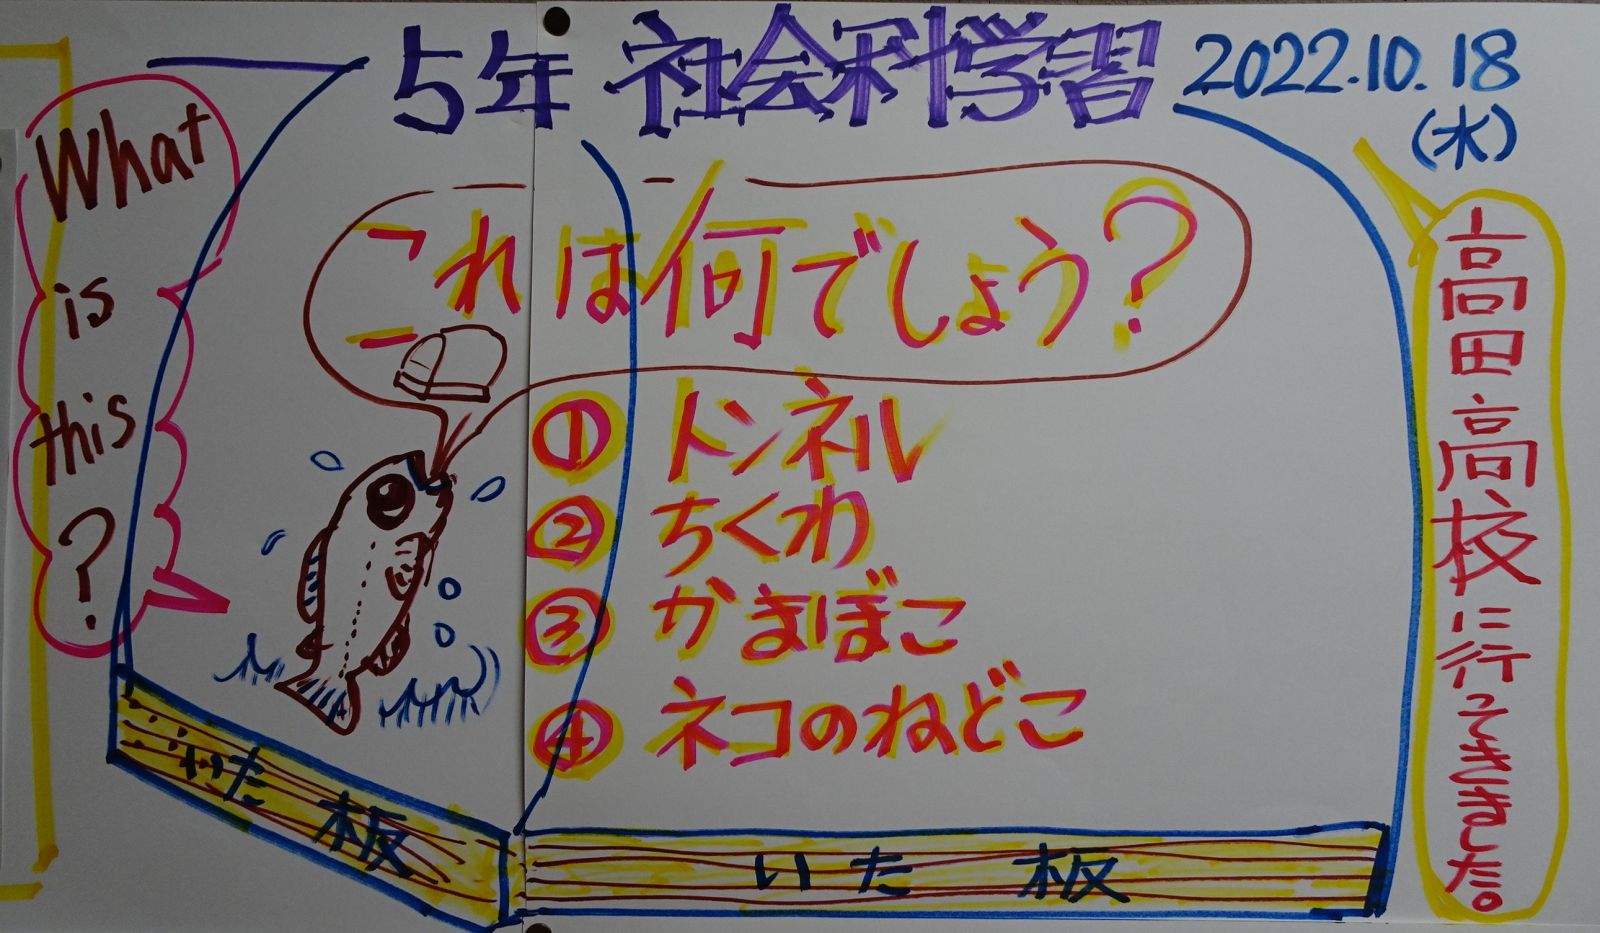 5年 社会科学習
2022.10.18
(水)
What
is
this
?
これは何でしょう?
①トンネル
②ちくわ
③かまぼこ
④ネコのねどこ
高田高校に行ってきました。
いた 板
いた 板